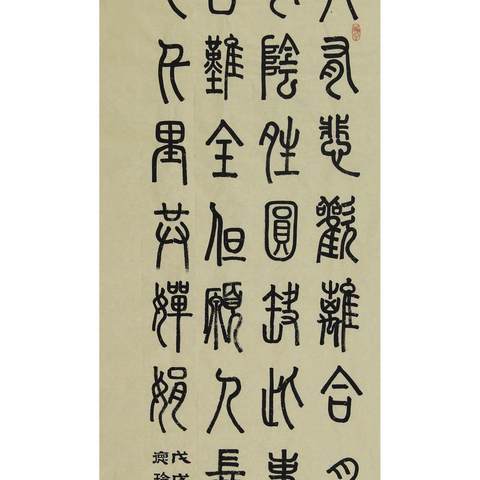 人有悲歡離合月
有陰晴圓缺此事
古難全但願人長
久千里共嬋娟
戊戌
德